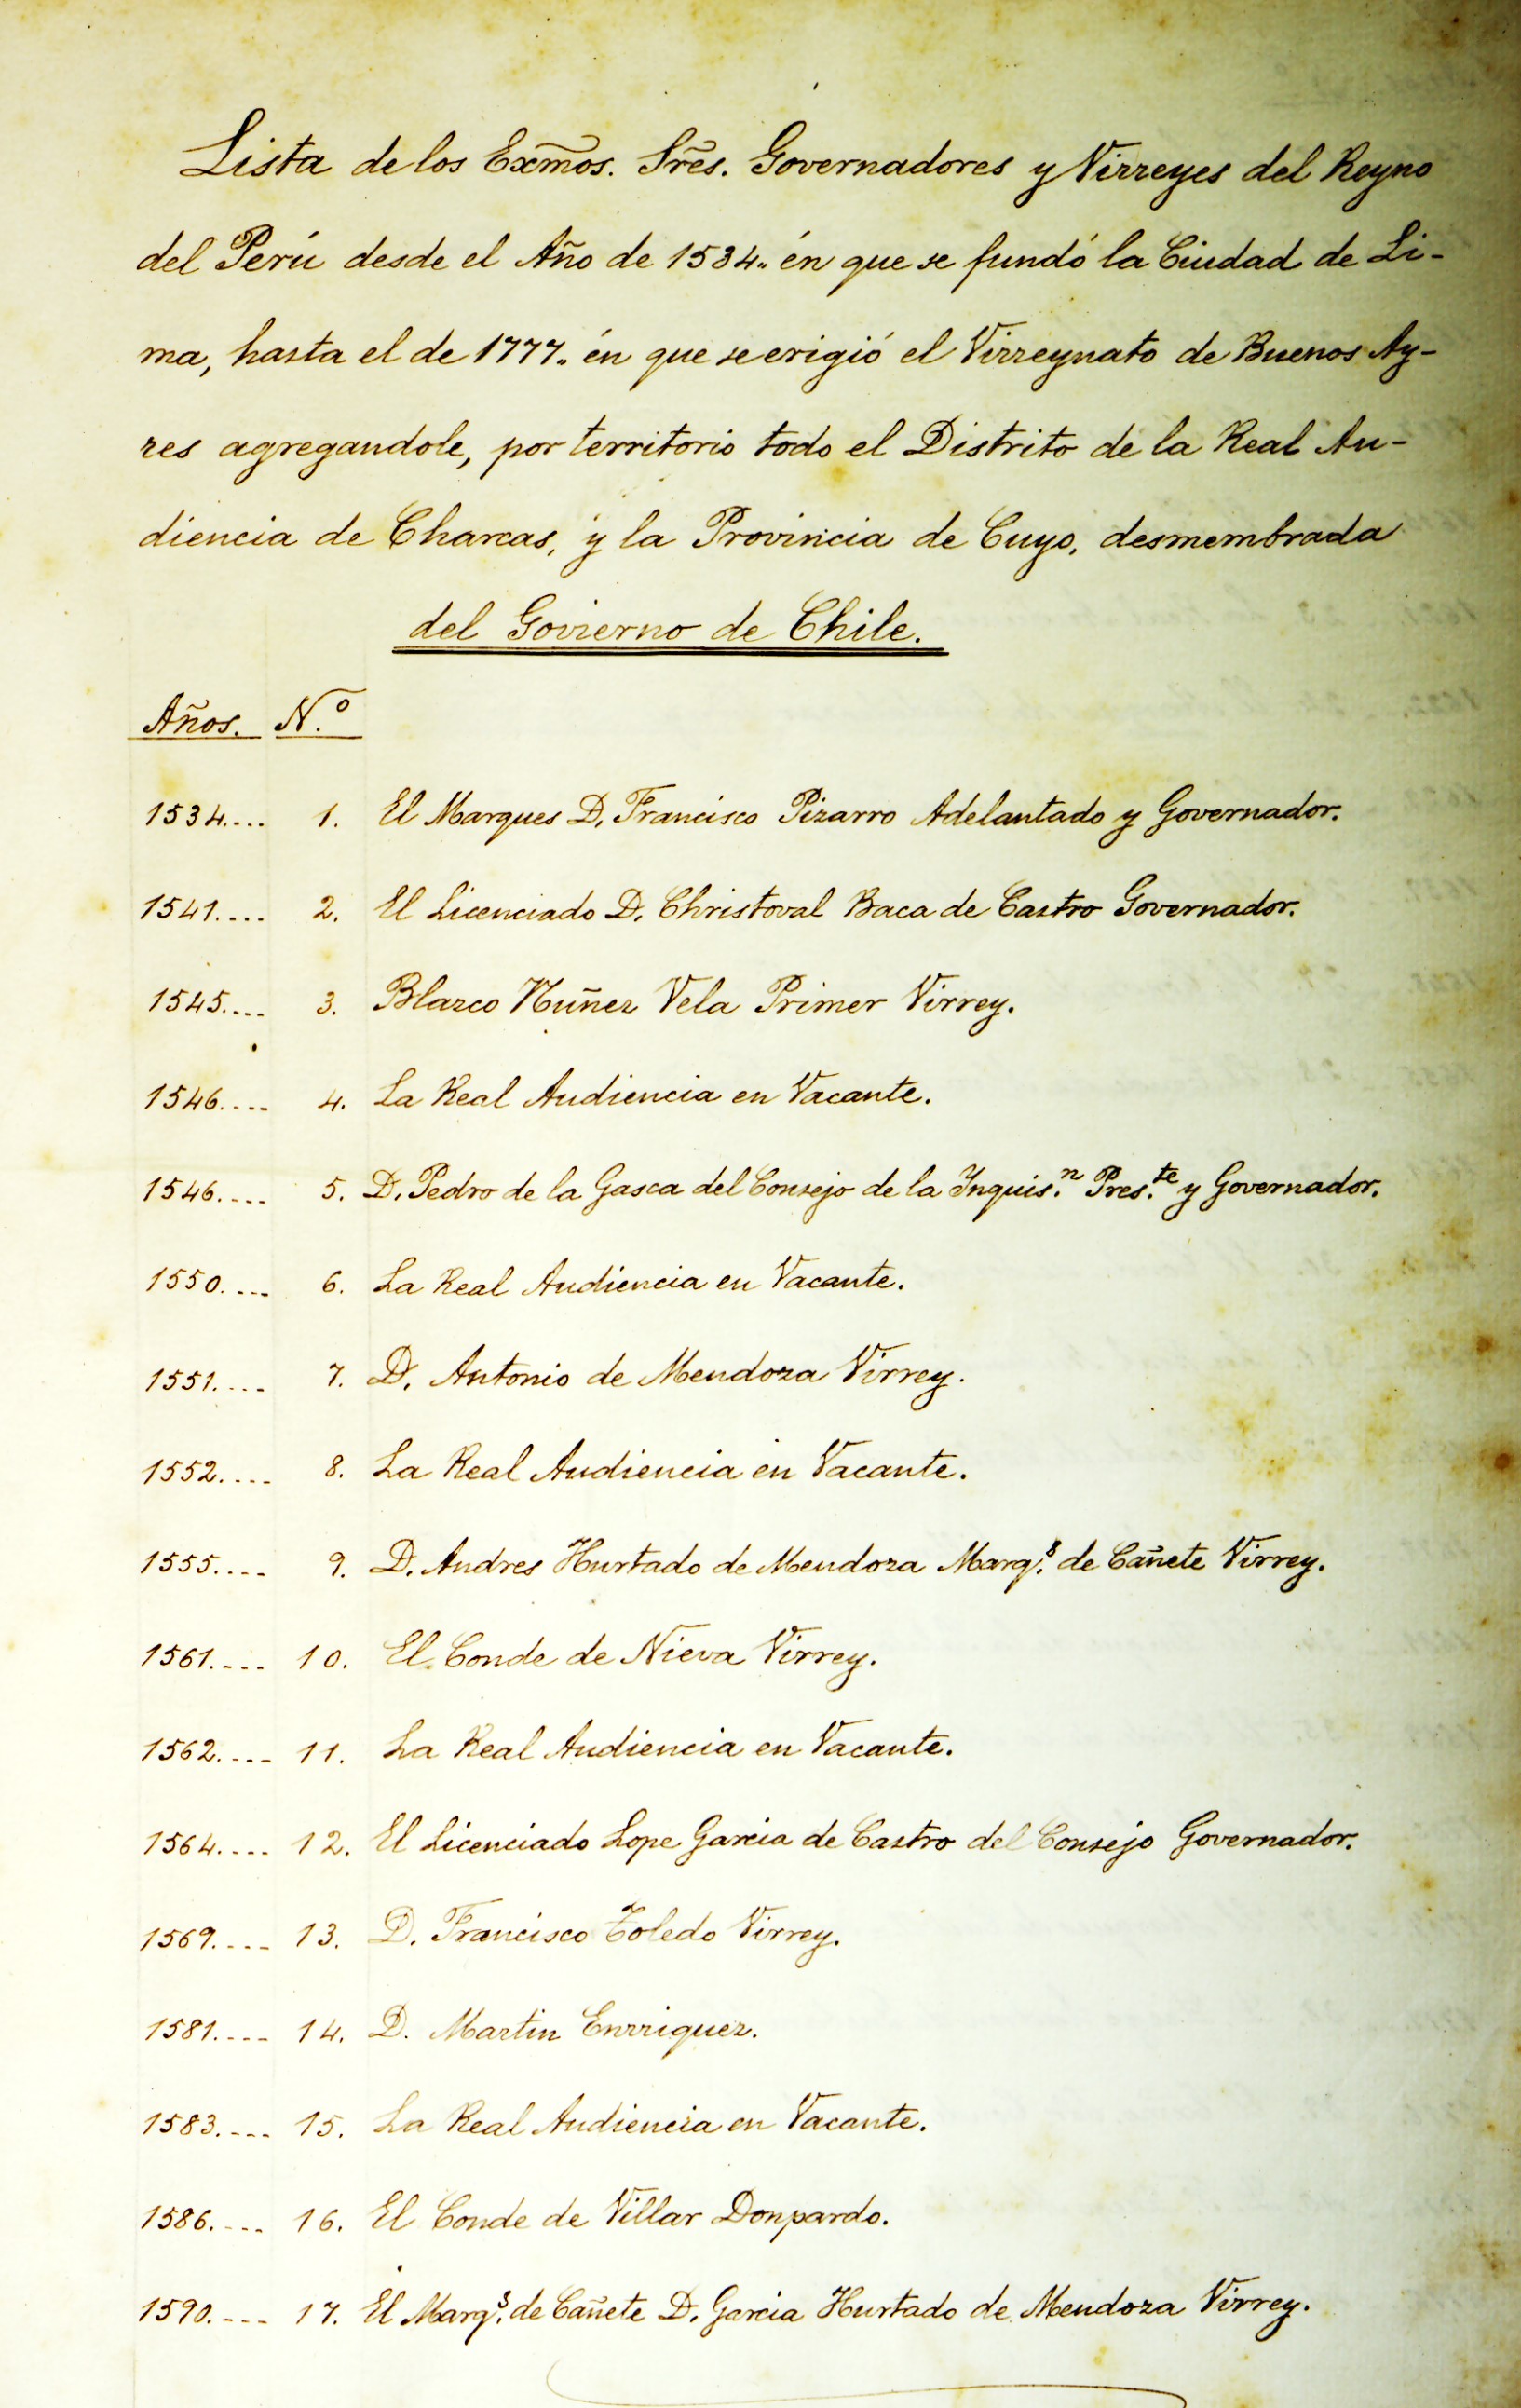 Lista de los Exm̃os. Sr̃es. Governadores y Virreyes del Reyno
del Perú desde el Año de 1534.. én que se fundó la Ciudad de Li-
ma, hasta el de 1777.. én que se erigió el Virreynato de Buenos Ay-
res agregandole, por territorio todo el Distrito de la Real Au-
diencia de Charcas, y la Provincia de Cuyo, desmembrada
del Govierno de Chile.
Años. N.º
1534.... 1. El Marques D. Francisco Pizarro Adelantado y Governador.
1541.... 2. El Licenciado D. Christoval Baca de Castro Governador.
1545.... 3. Blazco Nuñez Vela Primer Virrey.
1546.... 4. La Real Audiencia en Vacante.
1546.... 5. D. Pedro de la Gasca del Consejo de la Inquis.n Pres.te y Governador.
1550.... 6. La Real Audiencia en Vacante.
1551.... 7. D. Antonio de Mendoza Virrey.
1552.... 8. La Real Audiencia en Vacante.
1555.... 9. D. Andres Hurtado de Mendoza Marq.s de Cañete Virrey.
1561.... 10. El Conde de Nieva Virrey.
1562.... 11. La Real Audiencia en Vacante.
1564.... 12. El Licenciado Lope Garcia de Castro del Consejo Governador.
1569.... 13. D. Francisco Toledo Virrey.
1581.... 14. D. Martin Enrriquez.
1583.... 15. La Real Audiencia en Vacante.
1586.... 16. El Conde de Villar Donpardo.
1590.... 17. El Marq.s de Cañete D. Garcia Hurtado de Mendoza Virrey.